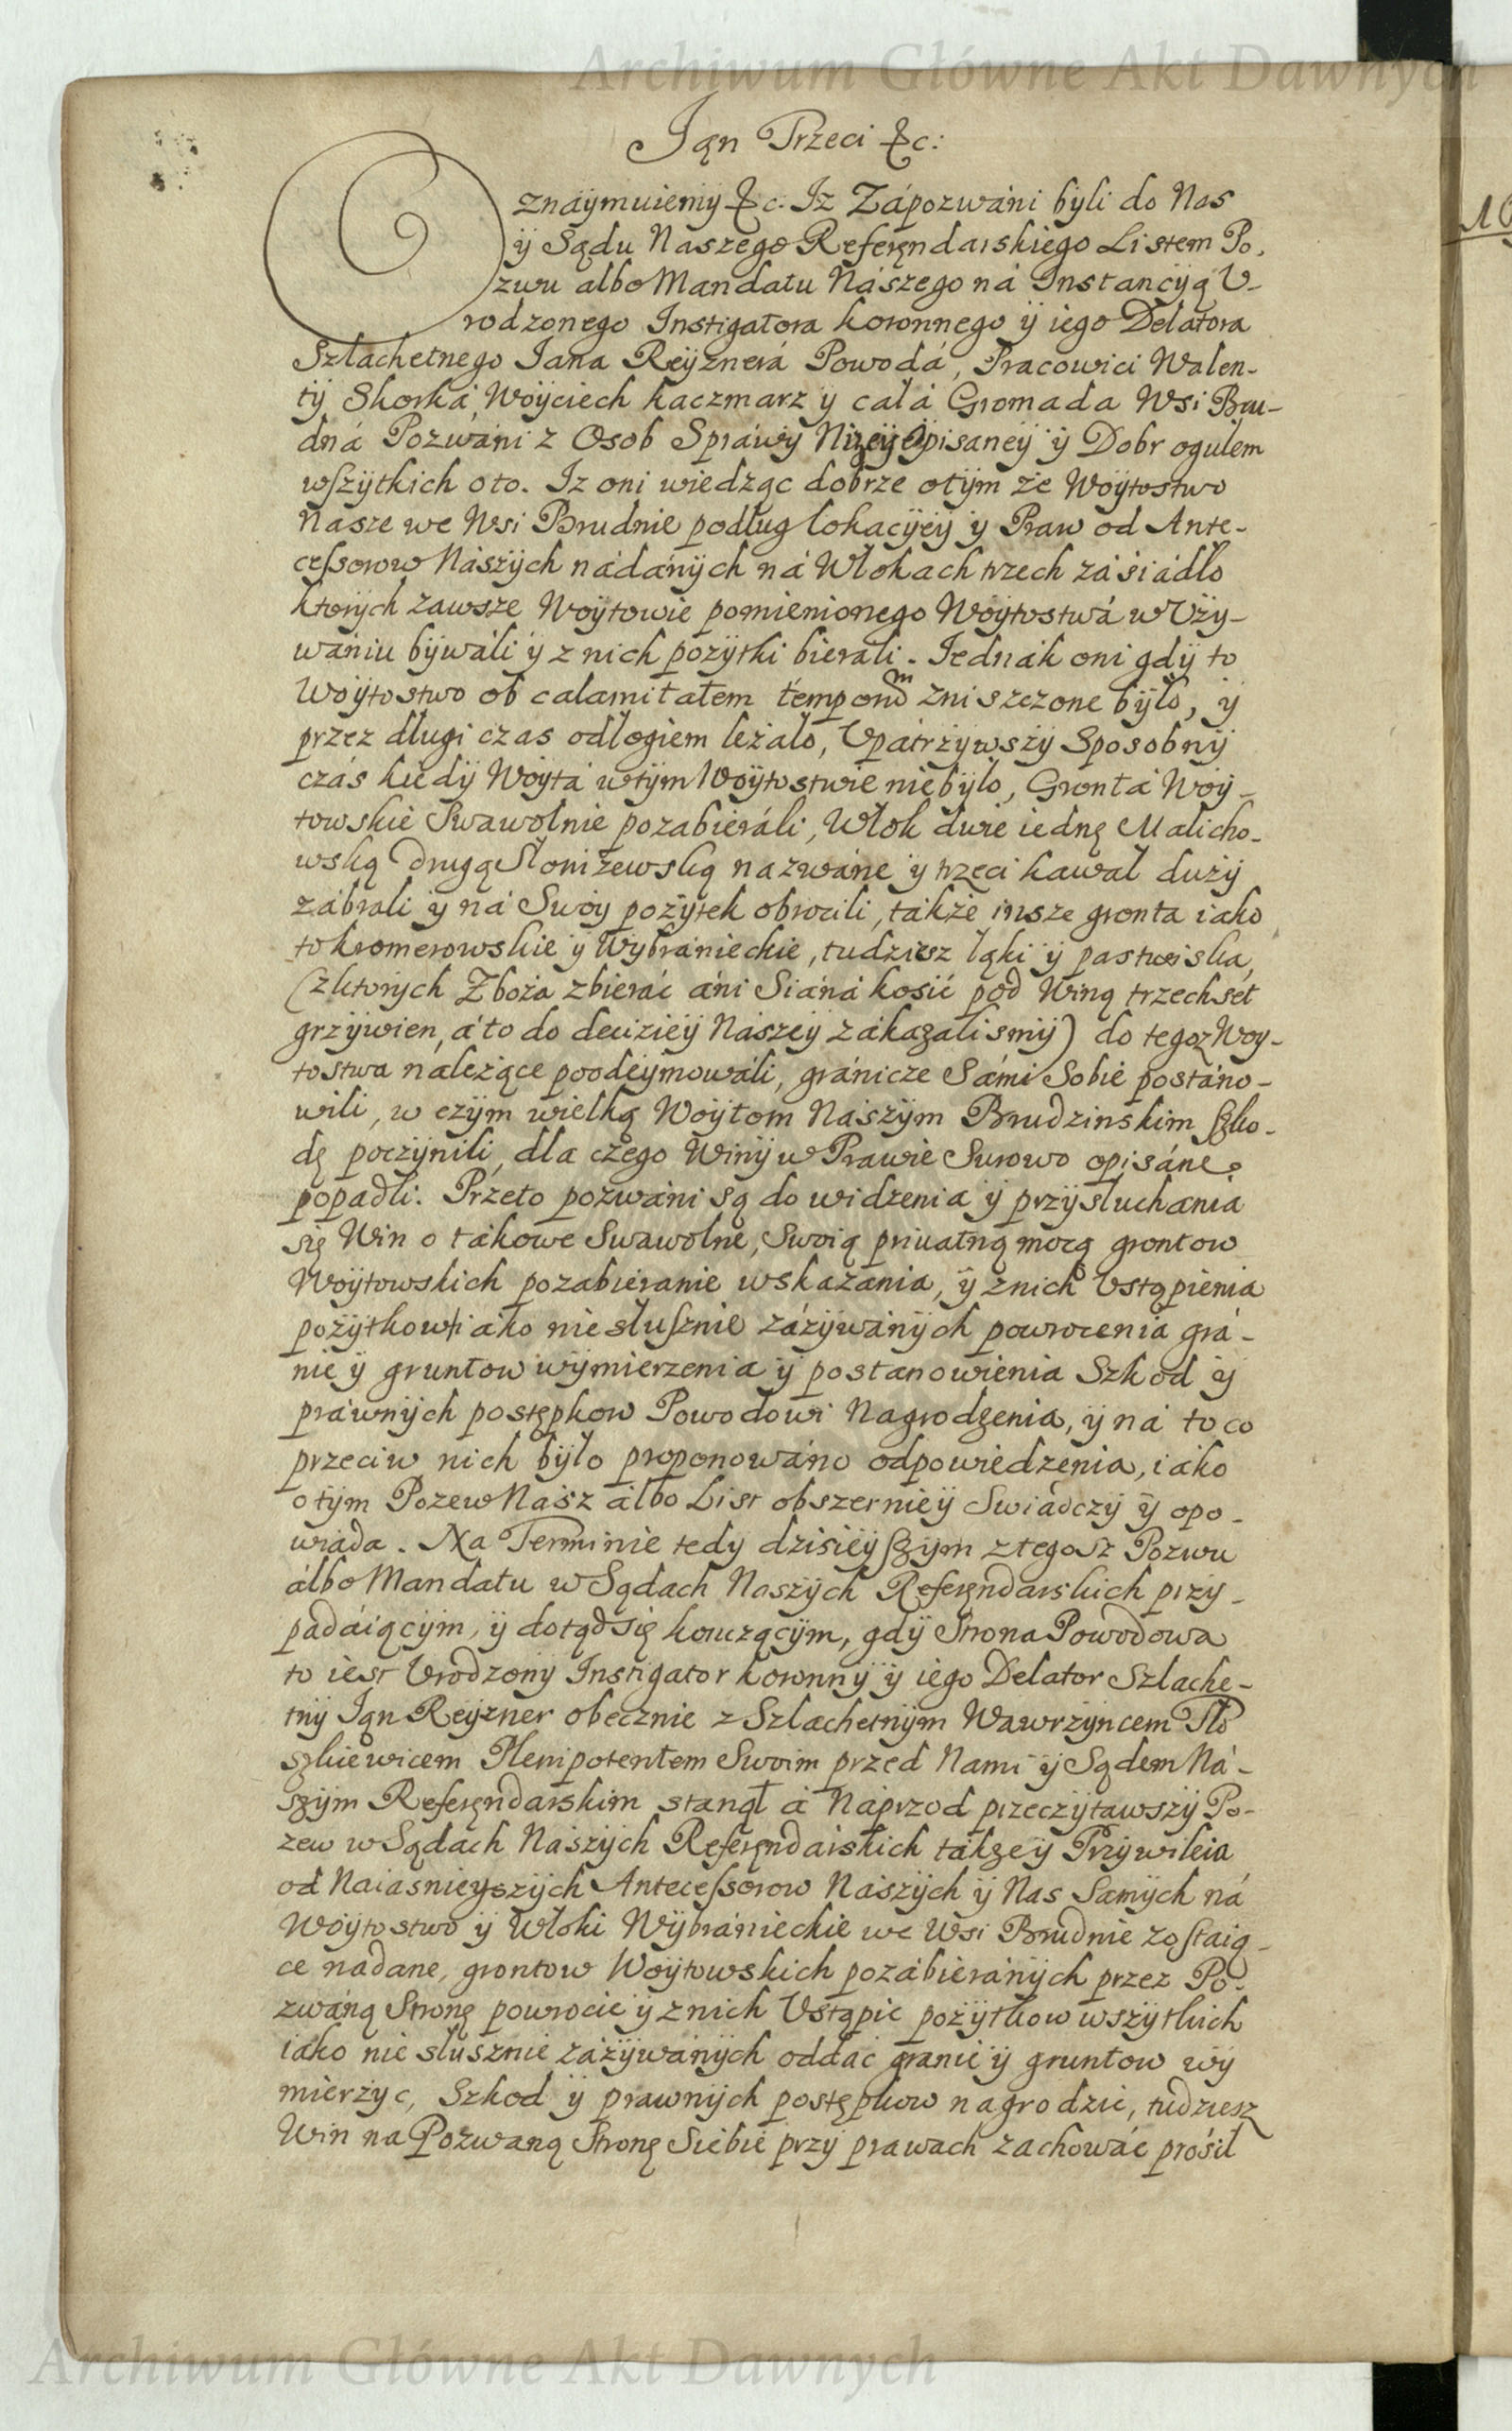 Archiwum Główne Akt Dawnych
Ian Trzeci &c:
Oznáymuiemy &c: Iż Zápozwáni byli do Nas
ÿ Sądu Naszego Referęndarskiego Listem Po,
zwu albo Mandatu Nászego ná Instancÿą V-
rodzonego Instigatora koronnego ÿ iego Delatora
Szlachetnego Iana Reÿznerá Powodá, Pracowici Walen-
tÿ Skorká, Woÿciech kaczmarz ÿ całá Gromada Wsi Bru-
dná Pozwáni z Osob Spráwÿ Niżeÿ opisaneÿ ÿ Dobr ogulem
wszÿtkich o to. Iż oni wiedząc dobrze otÿm że Woÿtostwo
Nasze we Wsi Brudnie podług lokacÿeÿ ÿ Praw od Ante-
cessorow Nászÿch nádánÿch ná Włokach trzech záśiádło
ktorÿch zawsze Woÿtowie pomienionego Woÿtostwá w Vżÿ-
wániu bÿwáli ÿ z nich pożÿtki bierali. Iednák oni gdÿ to
Woÿtostwo ob calamitatem temporum zniszczone bÿło, ÿ
przez długi czas odłogiem leżało, Vpátrzÿwszÿ Sposobnÿ
czás kiedÿ Woÿtá wtÿm Woÿtostwie niebÿło, Grontá Woÿ-
towskie Swawolnie pozabieráli, Włok dwie iednę Malicho-
wską drugą Słoniżewską nazwáne ÿ trzeci kawał dużÿ
zábrali ÿ ná Swoÿ pożÿtek obrocili, także insze gronta iako
to kromerowskie ÿ Wÿbránieckie, tudziesz łąki ÿ pastwiska,
(z ktorÿch Zboża zbieráć áni Siáná kosić pod Winą trzechset
grzÿwien, á to do deciziéÿ Nászeÿ zákazalismÿ) do tegoz Woÿ-
tostwa należące poodeÿmowáli, gránicze Sámi Sobie postáno-
wili, w czÿm wielką Woÿtom Nászÿm Brudzinskim szko-
dę poczÿnili, dla czego Winÿ w Prawie Surowo opisáne
popadli. Przeto pozwáni są do widzenia ÿ przÿsłuchánia
się Win o tákowe Swawolne, Swoią priuatną mocą grontow
Woÿtowskich pozabieranie wskazánia, ÿ znich Vstąpienia
pożÿtkow iáko niesłusznie záżÿwánÿch powrocenia grá-
nic ÿ gruntow wÿmierzenia ÿ postanowienia Szkod ÿ
práwnÿch postępkow Powodowi Nagrodzenia, ÿ ná to co
przeciw nich bÿło proponowáno odpowiedzenia, iáko
o tÿm Pozew Nász álbo List obszernieÿ Swiádczÿ ÿ opo-
wiáda. Na Terminie tedy dzisieÿszÿm z tegosz Pozwu
álbo Mandatu w Sądach Naszÿch Referęndarskich przÿ-
padáiącÿm, ÿ dotąd się konczącÿm, gdÿ Strona Powodowa
to iest Vrodzonÿ Instigator koronnÿ ÿ iego Delator Szlache-
tnÿ Ian Reÿzner obecznie z Szlachetnÿm Wawrzÿncem Pło
szkiewicem Plenipotentem Swoim przed Nami ÿ Sądem Ná-
szÿm Referęndarskim stanął á Náprzod przeczÿtawszÿ Po-
zew w Sądach Nászÿch Referęndarskich tákże ÿ Przÿwileia
od Naiasnieÿszÿch Antecessorow Nászÿch ÿ Nas Samÿch ná
Woÿtostwo ÿ Włoki Wÿbránieckie we Wsi Brudnie zostaią-
ce nadane, grontow Woÿtowskich pozábieránÿch przez Po-
zwáną Stronę powrocić ÿ znich Vstąpić pożÿtkow wszÿtkich
iáko niesłusznie zażÿwánÿch oddáć granic ÿ gruntow wÿ
mierzÿc, Szkod ÿ prawnÿch postępkow nagrodzić, tudziesz
Win na Pozwaną Stronę Siebie przÿ prawach zachowáć prosił
Archiwum Główne Akt Dawnych